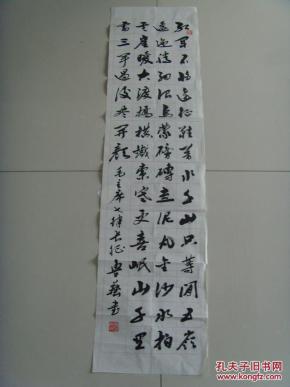 红军不怕远征難萬水千山只等闲五岭
逶迤腾细浪乌蒙磅礴走泥丸金沙水拍
云崖暖大渡桥横鐵索寒更喜岷山千里
雪三军过后尽开颜 毛主席七律长征 书
孔夫子旧书网